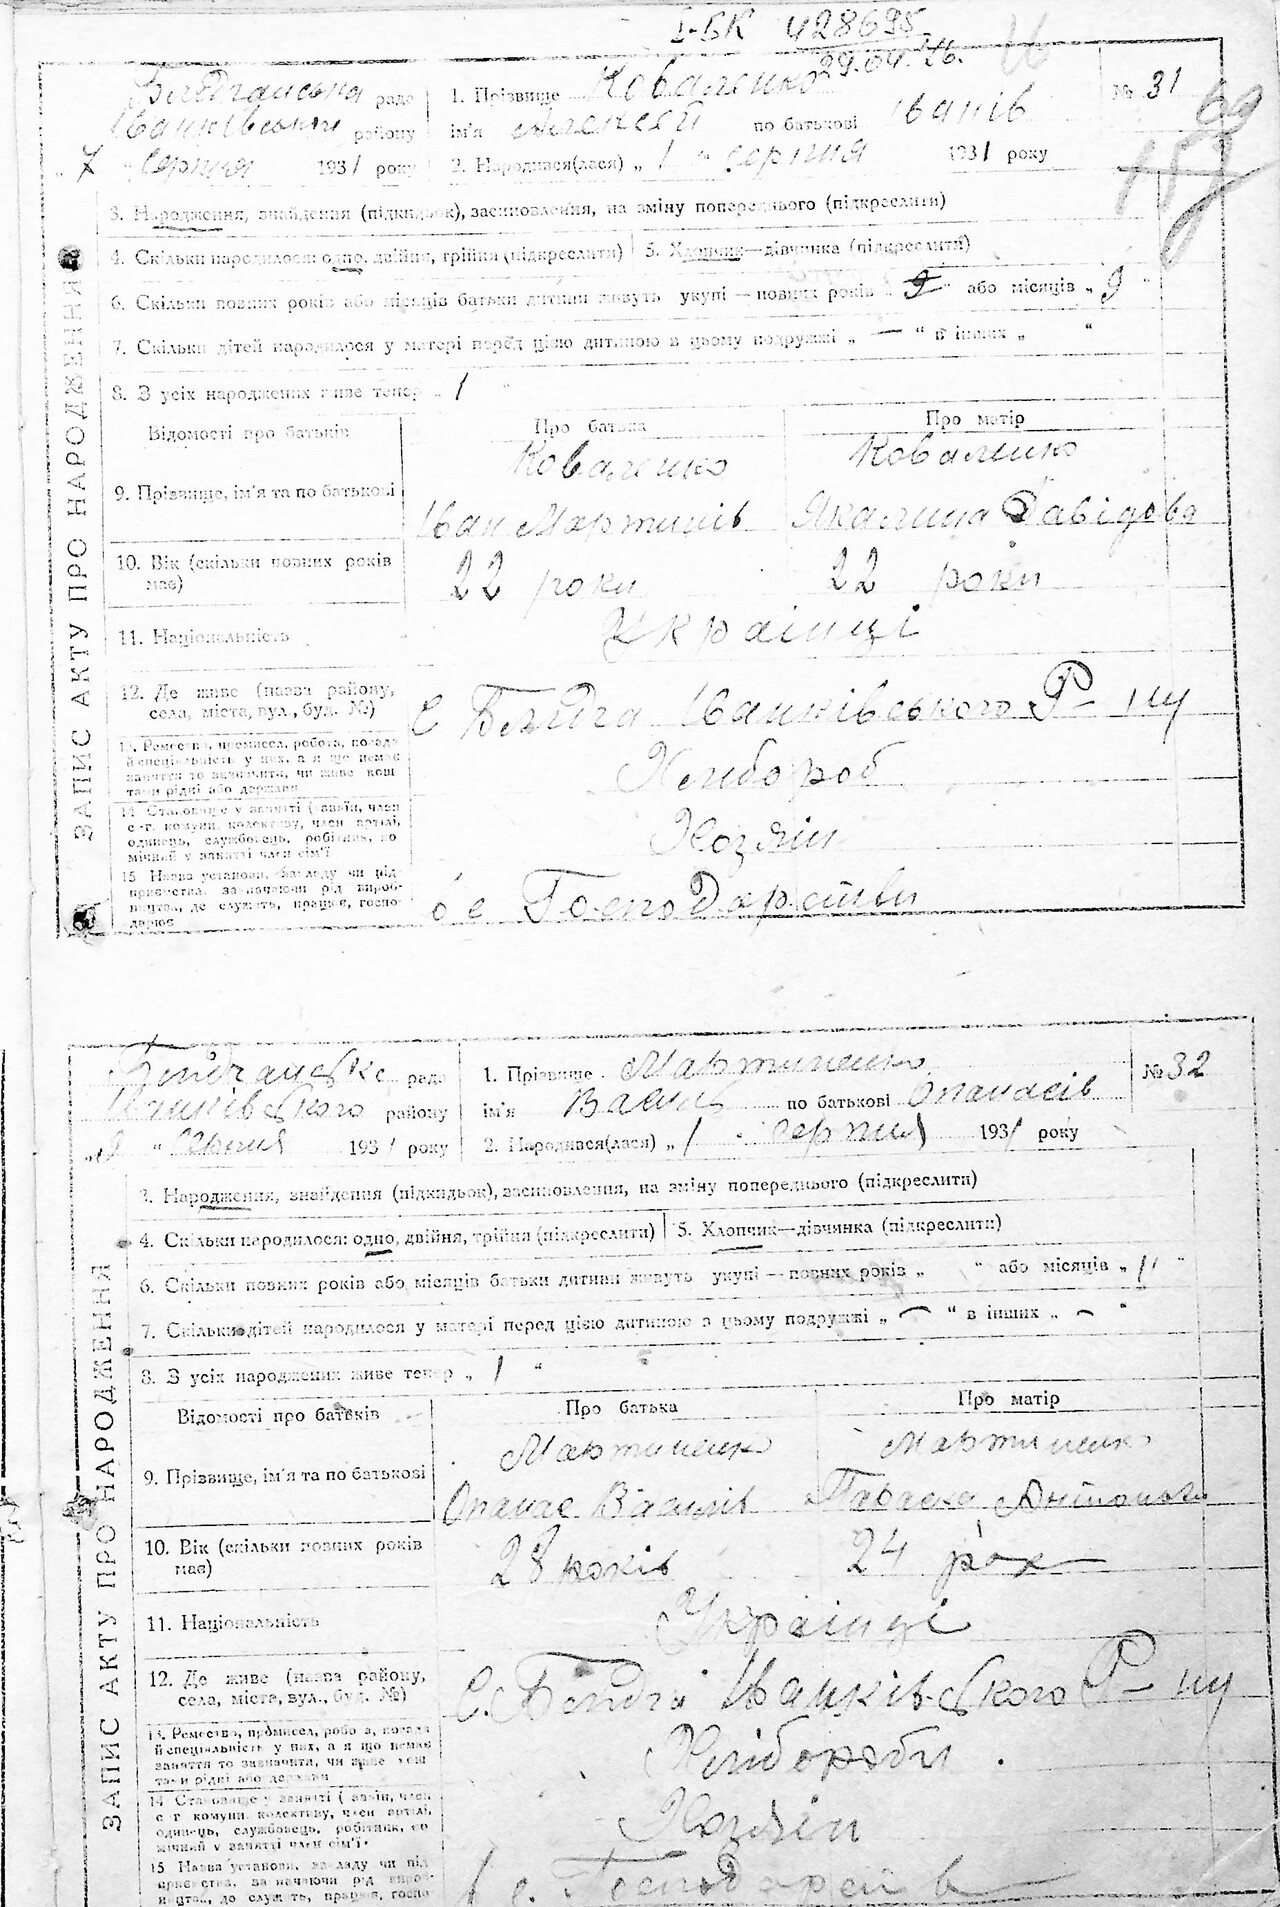 І-БК 428695
29.04.76.
рада
Іванківського району
7 "Серпня 1931 року
1. Прізвище Коваленко
ім'я Алексей по батькові Іванів
2. Народився(лася) „1" серпня 1931 року
№ 31
69
3. Народження, знайдення (підкидьок), засиновлення, на зміну попереднього (підкреслити)
4. Скільки народилося: одно, двійня, трійня (підкреслити)
5. Хлопчик—дівчинка (підкреслити)
6. Скільки повних років або місяців батьки дитини живуть укупі — повних років „9" або місяців „9"
7. Скільки дітей народилося у матері перед цією дитиною в цьому подружжі „—" в інших „ "
8. З усіх народжених живе тепер „1
ЗАПИС АКТУ ПРО НАРОДЖЕННЯ
Відомості про батьків
Про батька
Про матір
9. Прізвище, ім'я та по батькові
Коваленко
Коваленко
Іван Мартинів
Давідова
10. Вік (скільки повних років має)
22 роки
22 роки
11. Національність
Украінці
12. Де живе (назва району, села, міста, вул., буд. №)
С Іванківського Р-ну
13. Ремество, промисел, робота, посада й спеціяльність у них, а я що немає заняття то зазначити, чи живе кош тами рідні або держави
Хлибороб
14 Становище у занятті (хазяїн, член с-г. комуни, колективу, член артілі, одинець, службовець, робітник, по мічний у занятті член сім'ї
Хозяін
15 Назва установи, закладу чи підприємства, зазначаючи рід виробництва, де служить, працює, господарює
Господарстви
рада
Іванківського району
Серпня 1931 року
1. Прізвище Мартиненко
ім'я Василь по батькові Опанасів
2. Народився(лася) „1 Серпня 1931 року
№ 32
3. Народження, знайдення (підкидьок), засиновлення, на зміну попереднього (підкреслити)
4. Скільки народилося: одно, двійня, трійня (підкреслити)
5. Хлопчик—дівчинка (підкреслити)
6. Скільки повних років або місяців батьки дитини живуть укупі — повних років „ " або місяців „11"
7. Скільки дітей народилося у матері перед цією дитиною в цьому подружжі „—" в інших „—"
8. З усіх народжених живе тепер „1"
ЗАПИС АКТУ ПРО НАРОДЖЕННЯ
Відомості про батьків
Про батька
Про матір
9. Прізвище, ім'я та по батькові
Мартиненко
Мартиненко
Опанас Василів
Параска Антонова
10. Вік (скільки повних років має)
28 років
24 рок
11. Національність
Украінці
12. Де живе (назва району, села, міста, вул., буд. №)
С. Іванківського Р-ну
13. Ремество, промисел, робота, посада й спеціяльність у них, а я що немає заняття то зазначити, чи живе кош тами рідні або держави
Хлібороби
14 Становище у занятті (хазяїн, член с-г комуни, колективу, член артілі, одинець, службовець, робітник, по мічний у занятті член сім'ї
Хозяін
15 Назва установи, закладу чи підприємства, зазначаючи рід виробництва, де служить, працює, госпо-